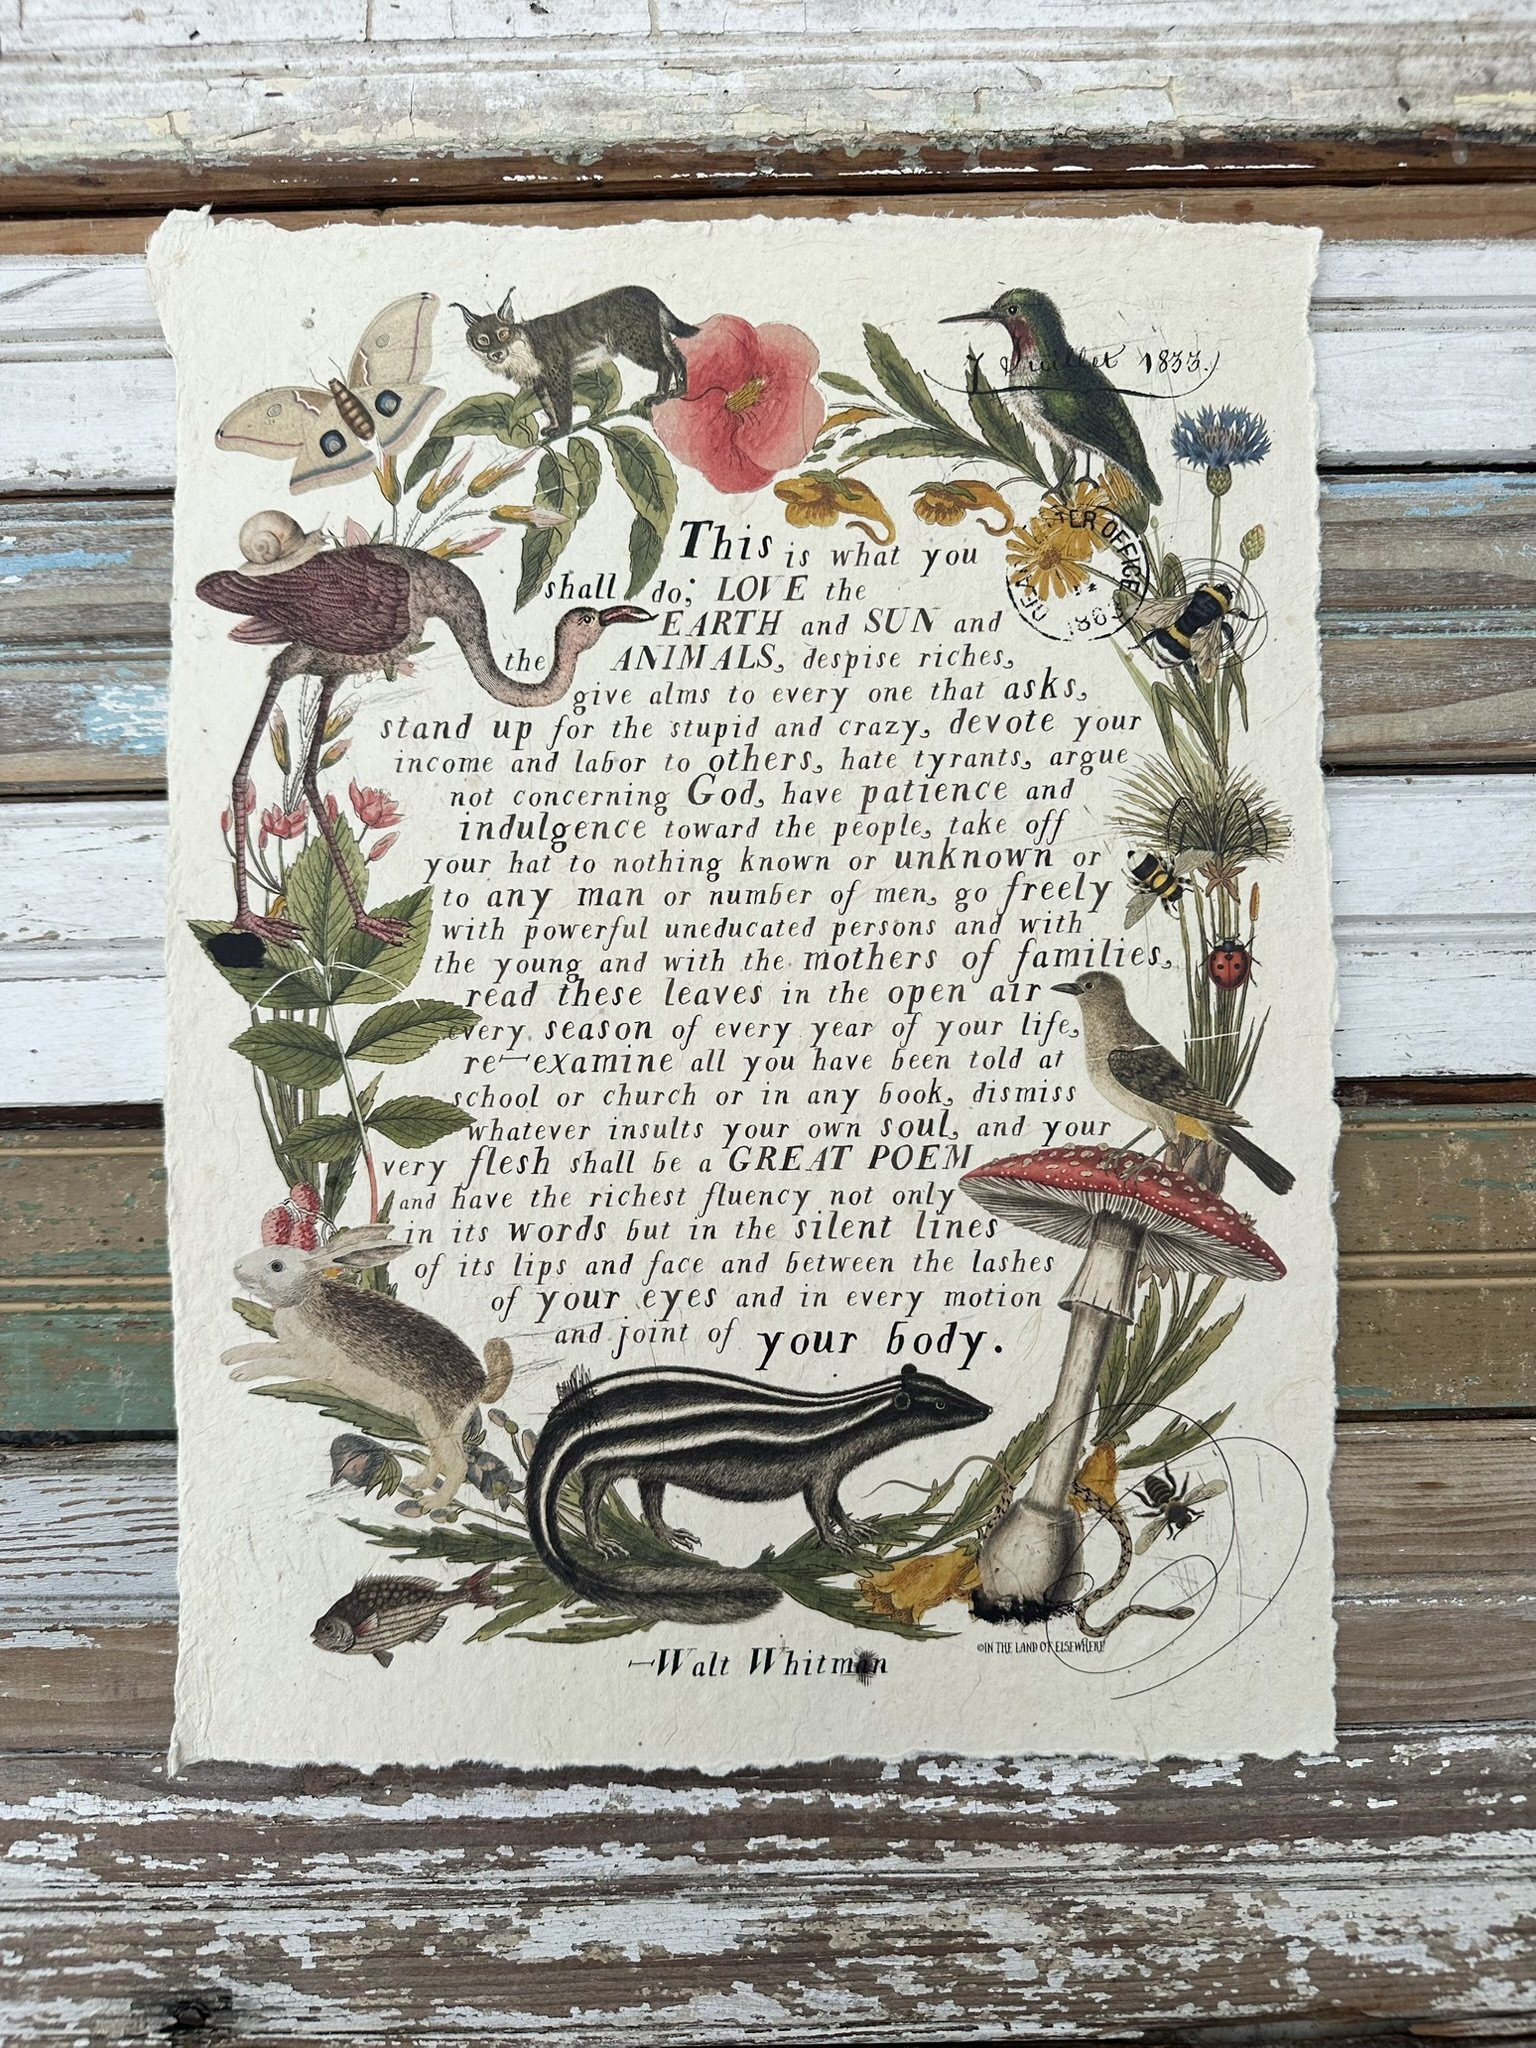 7 Juillet 1833.
This is what you
shall do; LOVE the
EARTH and SUN and
the ANIMALS, despise riches,
give alms to every one that asks,
stand up for the stupid and crazy, devote your
income and labor to others, hate tyrants, argue
not concerning God, have patience and
indulgence toward the people, take off
your hat to nothing known or unknown or
to any man or number of men, go freely
with powerful uneducated persons and with
the young and with the mothers of families,
read these leaves in the open air
every season of every year of your life,
re-examine all you have been told at
school or church or in any book, dismiss
whatever insults your own soul, and your
very flesh shall be a GREAT POEM
and have the richest fluency not only
in its words but in the silent lines
of its lips and face and between the lashes
of your eyes and in every motion
and joint of your body.
©IN THE LAND OF ELSEWHERE
—Walt Whitman